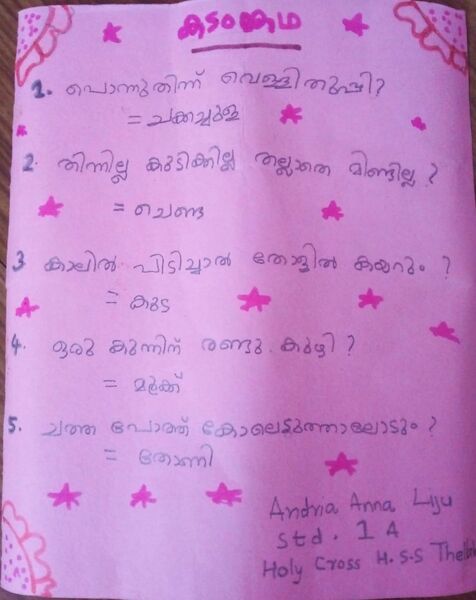 കടംങ്കഥ
1. പൊന്നുതിന്ന് വെള്ളിതുപ്പി?
= ചക്കച്ചുള
2. തിന്നില്ല കുടിക്കില്ല തല്ലാതെ മിണ്ടില്ല ?
= ചെണ്ട
3 കാലിൽ പിടിച്ചാൽ തോളിൽ കയറും ?
= കുട
4. ഒരു കുന്നിന് രണ്ടു കുഴി ?
= മൂക്ക്
5. ചത്ത പോത്ത് കോലെടുത്താലോടും ?
= തോണി
Andria Anna Liju
std . 1 A
Holy Cross H.S.S